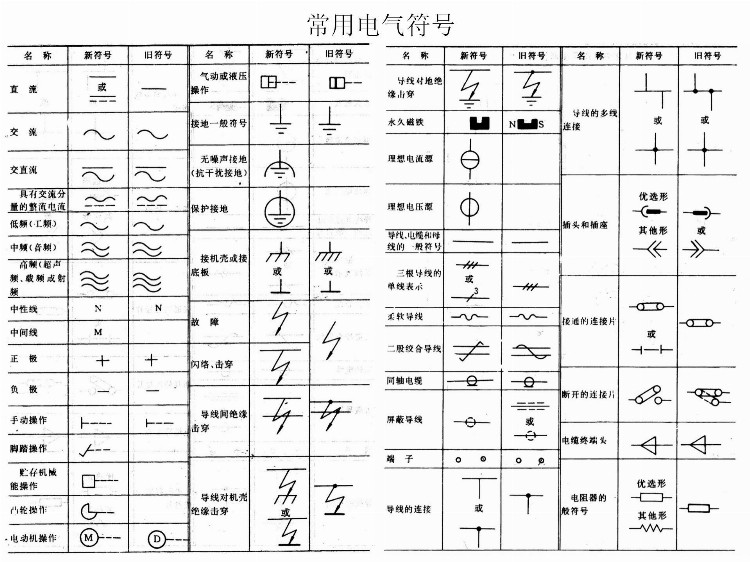 常用电气符号
名 称 新符号 旧符号
直 流 或
交 流
交直流
具有交流分
量的整流电流
低频(工频)
中频(音频)
高频(超声
频、载频或射
频
中性线 N N
中间线 M
正 极
负 极
手动操作
脚踏操作
贮存机械
能操作
凸轮操作
电动机操作 M D
名 称 新符号 旧符号
气动或液压
操作
接地一般符号
无噪声接地
(抗干扰接地)
保护接地
接机壳或接
底板 或 或
故 障
闪络、击穿
导线间绝缘
击穿
导线对机壳
绝缘击穿 或
名 称 新符号 旧符号
导线对地绝
缘击穿
永久磁铁 N S
理想电流源
理想电压源
导线、电缆和母
线的一般符号
三根导线的
单线表示 或
3
柔软导线
二股绞合导线
同轴电缆
屏蔽导线 或
端 子
导线的连接 或
名 称 新符号 旧符号
导线的多线
连接 或 或
插头和插座 优选形
其他形 或
接通的连接片 或
断开的连接片
电缆终端头
电阻器的 优选形
般符号 其他形